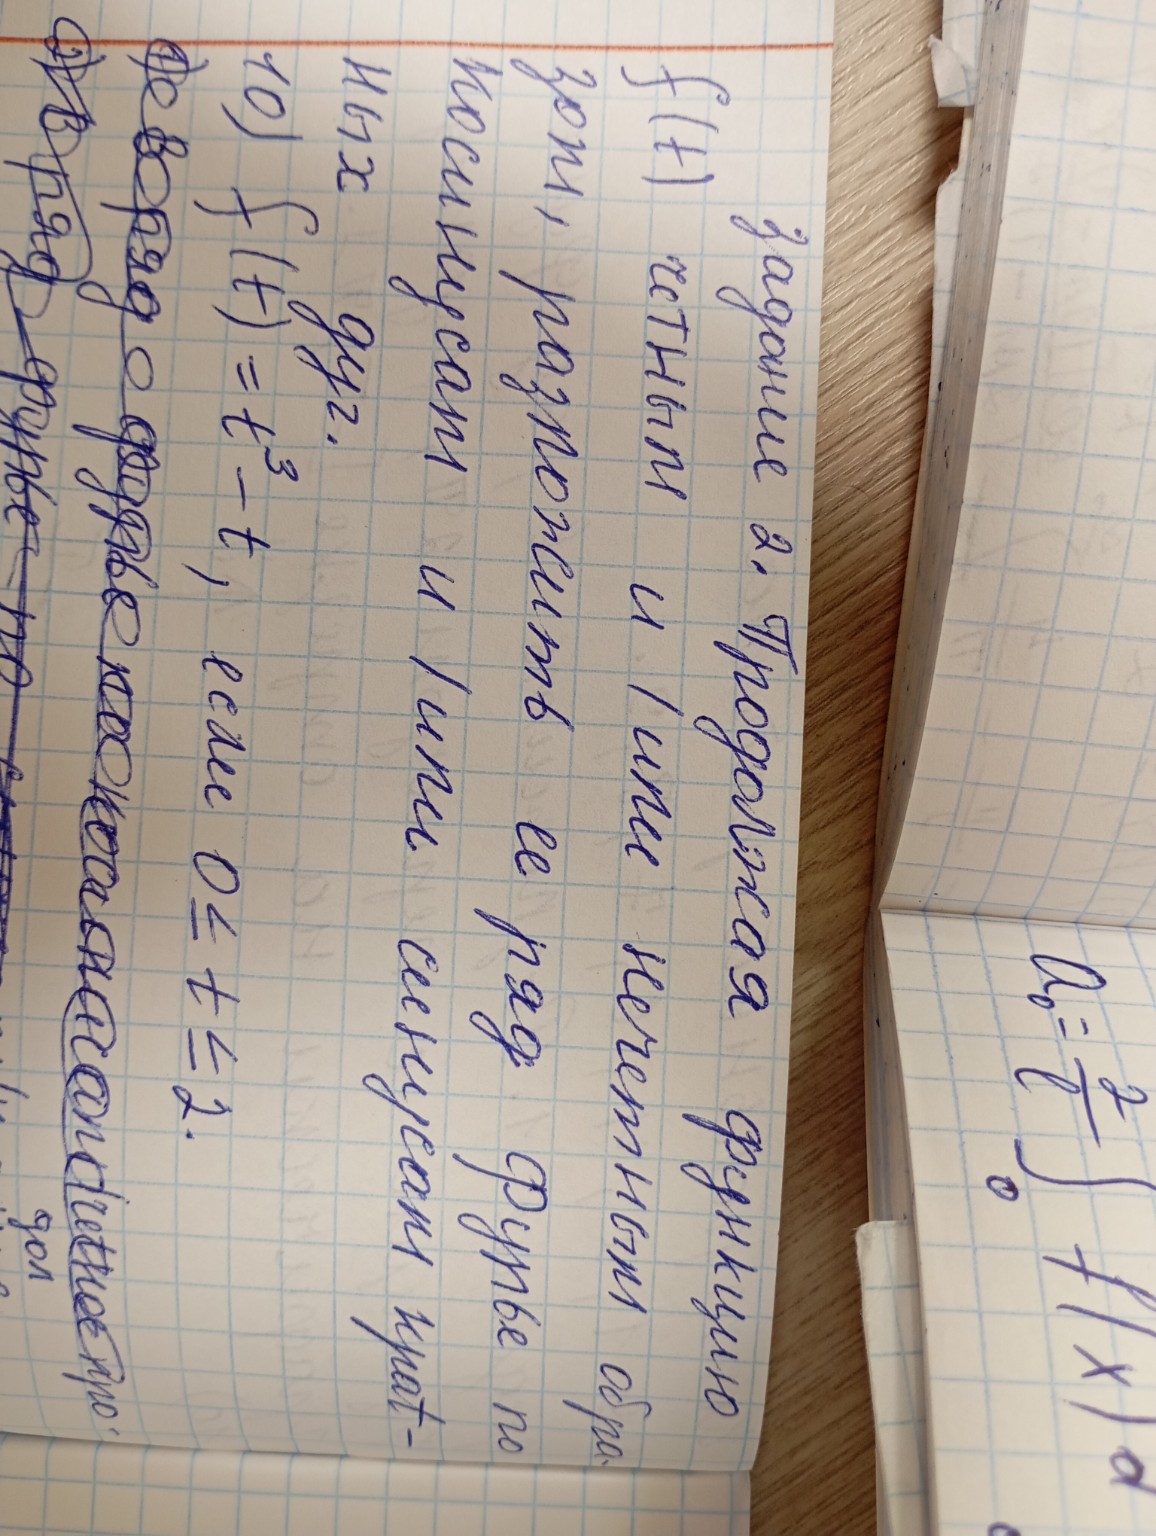 Задание 2. Продолжая функцию
f(t) четным и/или нечетным обра-
зом, разложить ее ряд Фурье по
косинусам и/или синусам крат-
ных дуг.
10) f(t) = t³ - t, если 0 ≤ t ≤ 2.
a₀ = 2/l ∫ f(x)d
0